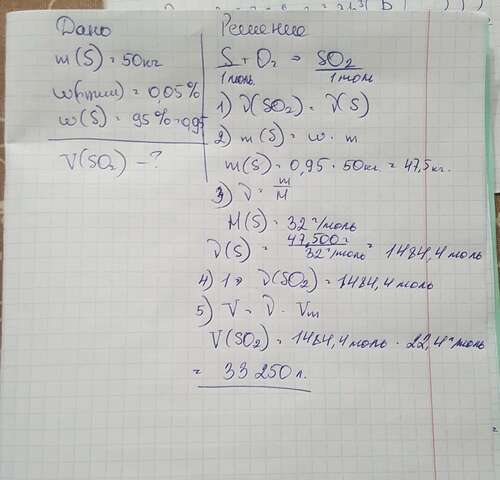 Дано
m(S) = 50кг
w(прим) = 0,05%
w(S) = 95% = 0,95
V(SO₂) - ?
Решение
S + O₂ = SO₂
1моль 1моль
1) ν(SO₂) = ν(S)
2) m(S) = w · m
m(S) = 0,95 · 50кг. = 47,5кг.
3) ν = m/M
M(S) = 32г/моль
ν(S) = 47,500г / 32г/моль = 1484,4 моль
4) 1 => ν(SO₂) = 1484,4 моль
5) V = ν · Vm
V(SO₂) = 1484,4 моль · 22,4л/моль
= 33 250 л.